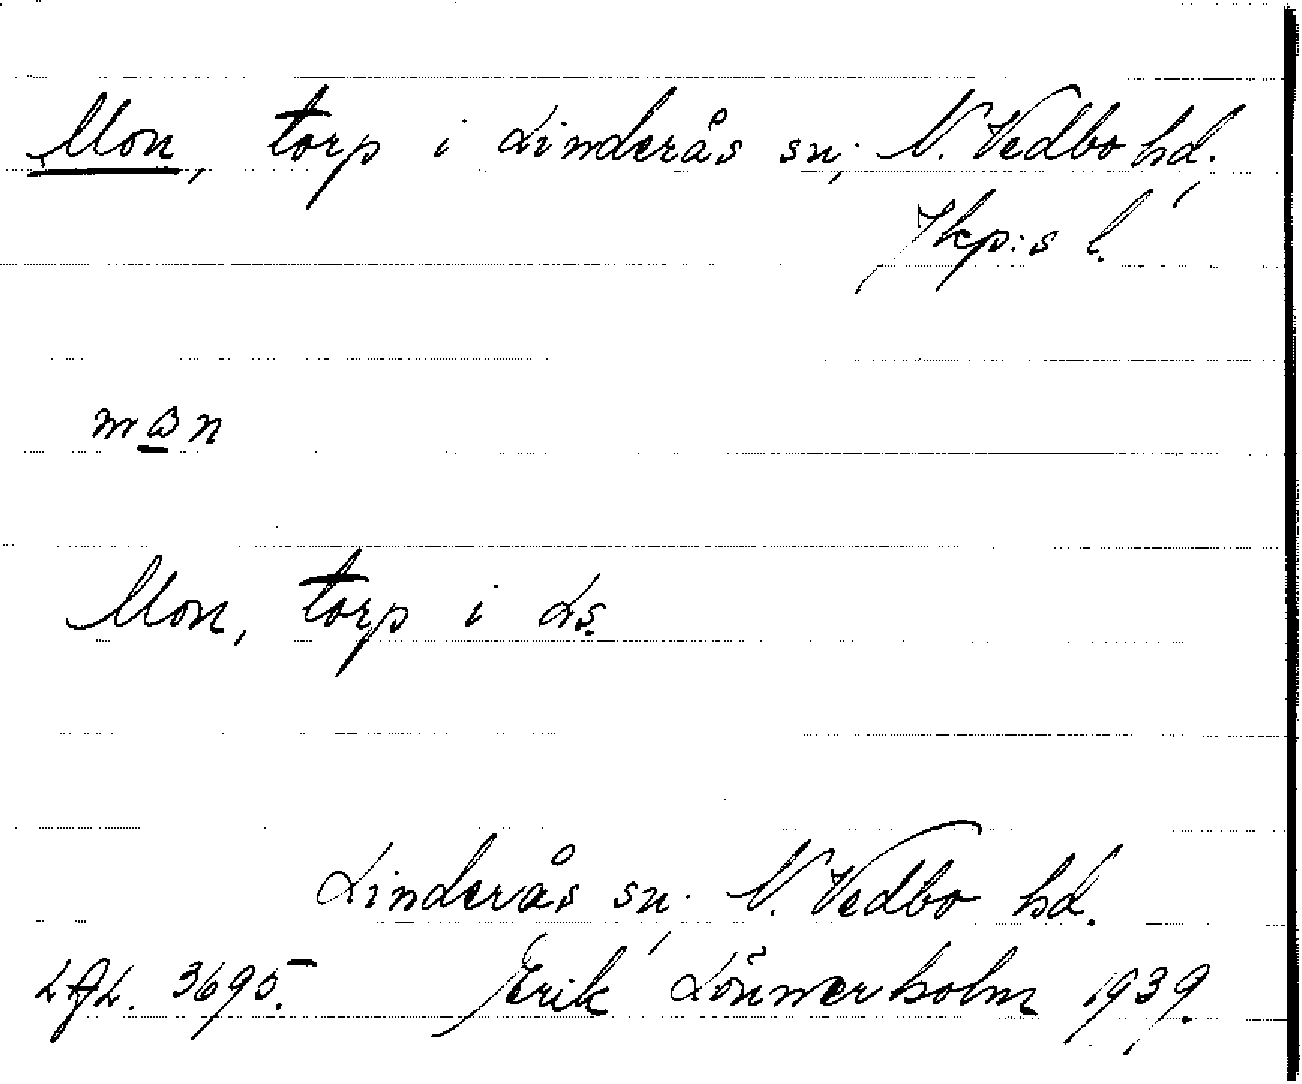 Mon, torp i Linderås sn, N. Vedbo hd.
Jkp:s l.
Mon, torp i Ls.
Linderås sn, N. Vedbo hd.
3695. Erik Lönnerholm 1939.